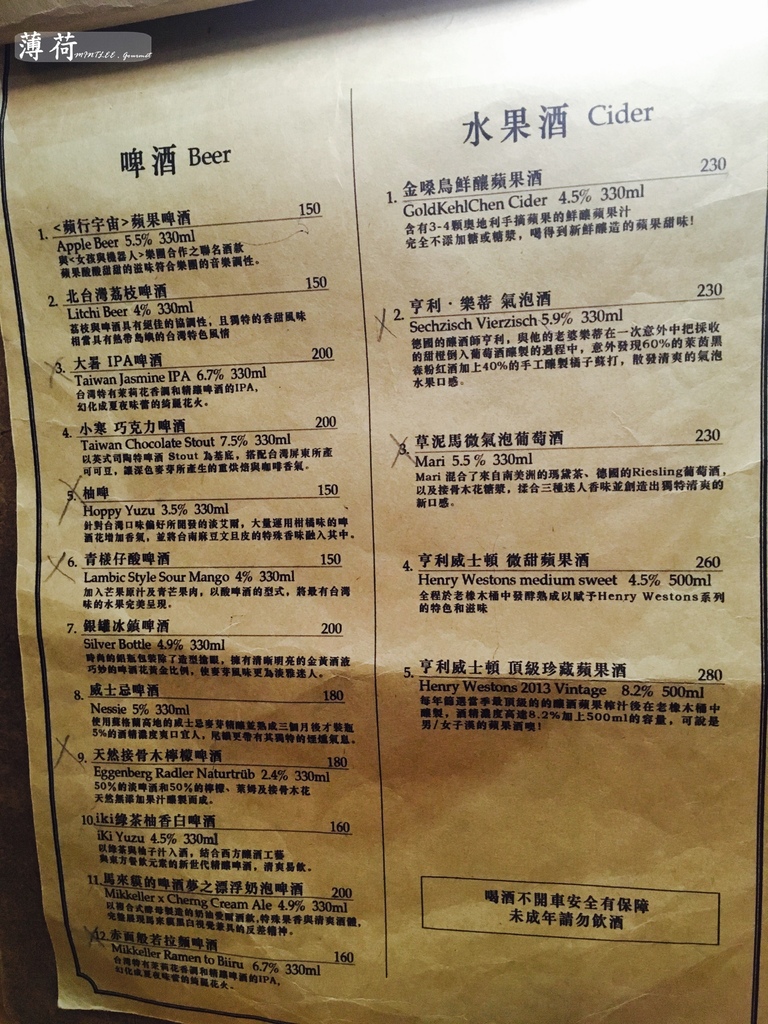 薄荷 MINTLEE . Gourmet
啤酒 Beer
1. <蘋行宇宙>蘋果啤酒 150
Apple Beer 5.5% 330ml
與<女孩與機器人>樂團合作之聯名酒款
蘋果酸酸甜甜的滋味符合樂團的音樂調性。
2. 北台灣荔枝啤酒 150
Litchi Beer 4% 330ml
荔枝與啤酒具有絕佳的協調性，且獨特的香甜風味
相當具有熱帶島嶼的台灣特色風情
3. 大暑 IPA啤酒 200
Taiwan Jasmine IPA 6.7% 330ml
台灣特有茉莉花香調和精釀啤酒的IPA，
幻化成夏夜味蕾的綺麗花火。
4. 小寒 巧克力啤酒 200
Taiwan Chocolate Stout 7.5% 330ml
以英式司陶特啤酒 Stout 為基底，搭配台灣屏東所產
可可豆，讓深色麥芽所產生的重烘焙與咖啡香氣。
5. 柚啤 150
Hoppy Yuzu 3.5% 330ml
針對台灣口味偏好所開發的淡艾爾，大量運用柑橘味的啤
酒花增加香氣，並將台南麻豆文旦皮的特殊香味融入其中。
6. 青樣仔酸啤酒 150
Lambic Style Sour Mango 4% 330ml
加入芒果原汁及青芒果肉，以酸啤酒的型式，將最有台灣
味的水果完美呈現。
7. 銀罐冰鎮啤酒 200
Silver Bottle 4.9% 330ml
時尚的鋁瓶包裝除了造型搶眼，擁有清晰明亮的金黃酒液
巧妙的啤酒花黃金比例，使麥芽風味更為淡雅迷人。
8. 威士忌啤酒 180
Nessie 5% 330ml
使用蘇格蘭高地的威士忌麥芽精釀並熟成三個月後才裝瓶
5%的酒精濃度爽口宜人，尾韻更帶有其獨特的煙燻氣息。
9. 天然接骨木檸檬啤酒 180
Eggenberg Radler Naturtrüb 2.4% 330ml
50%的淡啤酒和50%的檸檬、萊姆及接骨木花
天然無添加果汁釀製而成。
10. iki綠茶柚香白啤酒 160
iKi Yuzu 4.5% 330ml
以綠茶與柚子汁入酒，結合西方釀酒工藝
與東方餐飲元素的新世代精釀啤酒，清爽易飲。
11. 馬來貘的啤酒夢之漂浮奶泡啤酒 200
Mikkeller x Cherng Cream Ale 4.9% 330ml
以複合式酵母釀造的奶油愛爾酒款，特殊果香與清爽酒體，
完整展現馬來貘黑白視覺兼具的反差精神。
12. 赤面般若拉麵啤酒 160
Mikkeller Ramen to Biiru 6.7% 330ml
台灣特有茉莉花香調和精釀啤酒的IPA，
幻化成夏夜味蕾的綺麗花火。
水果酒 Cider
1. 金嗓鳥鮮釀蘋果酒 230
GoldKehlChen Cider 4.5% 330ml
含有3-4顆奧地利手摘蘋果的鮮釀蘋果汁
完全不添加糖或糖漿，喝得到新鮮釀造的蘋果甜味！
2. 亨利．樂蒂 氣泡酒 230
Sechzisch Vierzisch 5.9% 330ml
德國的釀酒師亨利，與他的老婆樂蒂在一次意外中把採收
的甜橙倒入葡萄酒釀製的過程中，意外發現60%的萊茵黑
森粉紅酒加上40%的手工釀製橘子蘇打，散發清爽的氣泡
水果口感。
3. 草泥馬微氣泡葡萄酒 230
Mari 5.5 % 330ml
Mari 混合了來自南美洲的瑪黛茶、德國的Riesling葡萄酒，
以及接骨木花糖漿，揉合三種迷人香味並創造出獨特清爽的
新口感。
4. 亨利威士頓 微甜蘋果酒 260
Henry Westons medium sweet 4.5% 500ml
全程於老橡木桶中發酵熟成以賦予Henry Westons系列
的特色和滋味
5. 亨利威士頓 頂級珍藏蘋果酒 280
Henry Westons 2013 Vintage 8.2% 500ml
每年篩選當季最頂級的的釀酒蘋果榨汁後在老橡木桶中
釀製，酒精濃度高達8.2%加上500ml的容量，可說是
男/女子漢的蘋果酒噢！
喝酒不開車安全有保障
未成年請勿飲酒